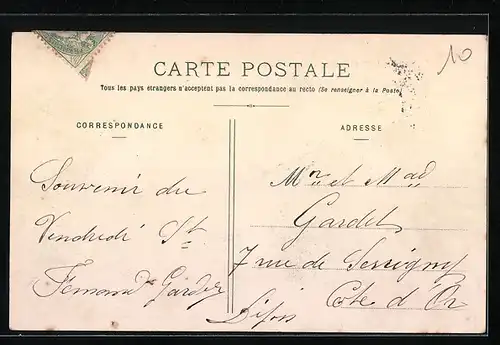 10
CARTE POSTALE
Tous les pays étrangers n'acceptent pas la correspondance au recto (Se renseigner à la Poste)
CORRESPONDANCE
ADRESSE
Souvenir du
Vendredi St
Fernand Gardet
Mr et Mad
Gardet
7 rue de
Dijon
Cote d'Or